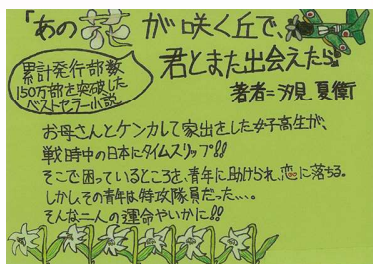 「あの花が咲く丘で、
君とまた出会えたら。」
累計発行部数
150万部を突破した
ベストセラー小説
著者=汐見 夏衛
お母さんとケンカして家出をした女子高生が、
戦時中の日本にタイムスリップ!!
そこで困っているところを、青年に助けられ、恋に落ちる。
しかし、その青年は特攻隊員だった...。
そんな二人の運命やいかに!!